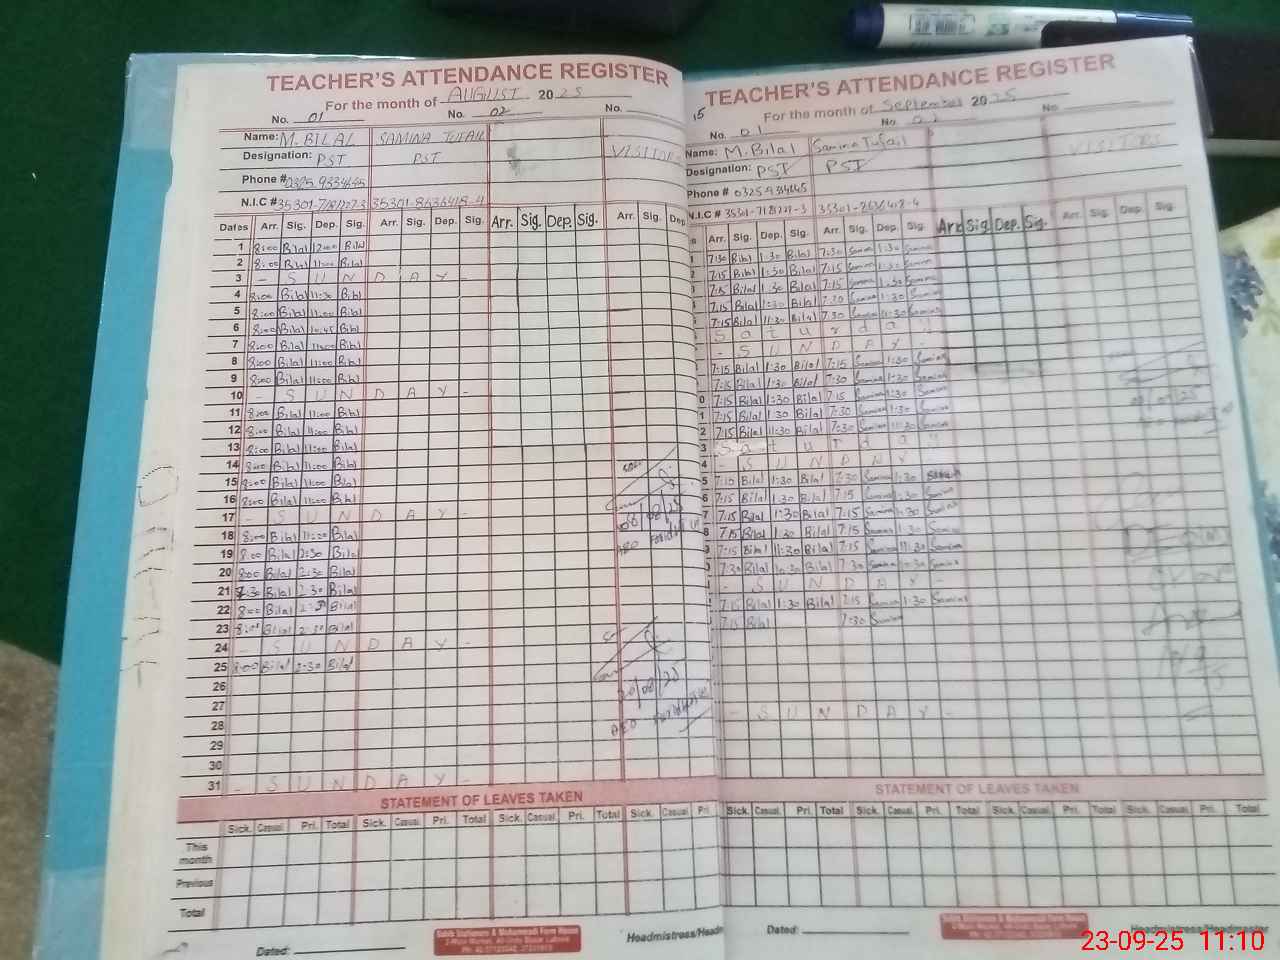 TEACHER'S ATTENDANCE REGISTER
For the month of AUGUST 2025
No. 01 No. 02 No.
Name: M. BILAL SAMINA TUFAIL
Designation: PST PST VISITORS
Phone #
N.I.C #
Dates Arr. Sig. Dep. Sig. Arr. Sig. Dep. Sig. Arr. Sig. Dep. Sig. Arr. Sig. Dep.
1 8:00 Bilal 12:00 Bilal
2 8:00 Bilal 11:00 Bilal
3 - S U N D A Y -
4 8:00 Bilal 11:30 Bilal
5 8:00 Bilal 11:00 Bilal
6 8:00 Bilal 10:45 Bilal
7 8:00 Bilal 11:00 Bilal
8 8:00 Bilal 11:00 Bilal
9 8:00 Bilal 11:00 Bilal
10 - S U N D A Y -
11 8:00 Bilal 11:00 Bilal
12 8:00 Bilal 11:00 Bilal
13 8:00 Bilal 11:00 Bilal
14 8:00 Bilal 11:00 Bilal
15 8:00 Bilal 11:00 Bilal
16 8:00 Bilal 11:00 Bilal
17 - S U N D A Y -
18 8:00 Bilal Bilal
19 8:00 Bilal 2:30 Bilal
20 8:00 Bilal 2:30 Bilal
21 Bilal 2:30 Bilal
22 8:00 Bilal 2:30 Bilal
23 8:00 Bilal 2:30 Bilal
24 - S U N D A Y -
25 8:00 Bilal 2:30 Bilal
26
27
28
29
30
31 - S U N D A Y -
STATEMENT OF LEAVES TAKEN
Sick. Casual. Pri. Total Sick. Casual. Pri. Total Sick. Casual. Pri. Total Sick. Casual. Pri.
This month
Previous
Total
Dated:
Headmistress/Headm
TEACHER'S ATTENDANCE REGISTER
For the month of September 2025
No. 01 No. 02 No.
Name: M. Bilal Samina Tufail VISITORS
Designation: PST PST
Phone #
N.I.C # 35301-7181227-3 35301-8636418-4
Arr. Sig. Dep. Sig. Arr. Sig. Dep. Sig. Arr. Sig. Dep. Sig. Arr. Sig. Dep. Sig.
7:30 Bilal 1:30 Bilal 7:30 Samina 1:30 Samina
7:15 Bilal 1:30 Bilal 7:15 Samina 1:30 Samina
7:15 Bilal 1:30 Bilal 7:15 Samina 1:30 Samina
7:15 Bilal 1:30 Bilal Samina 1:30 Samina
7:15 Bilal 11:30 Bilal 7:30 Samina 11:30 Samina
S a t u r d a y
- S U N D A Y -
7:15 Bilal 1:30 Bilal 7:15 Samina 1:30 Samina
7:15 Bilal 1:30 Bilal 7:30 Samina 1:30 Samina
7:15 Bilal 1:30 Bilal 7:15 Samina 1:30 Samina
7:15 Bilal 1:30 Bilal 7:30 Samina 1:30 Samina
7:15 Bilal 11:30 Bilal 7:30 Samina 11:30 Samina
S a t u r d a y
- S U N D A Y -
Bilal 1:30 Bilal 7:30 Samina 1:30
7:15 Bilal 1:30 Bilal 7:15 Samina 1:30 Samina
7:15 Bilal 1:30 Bilal 7:15 Samina 1:30 Samina
7:15 Bilal 1:30 Bilal 7:15 Samina 1:30 Samina
7:15 Bilal 11:30 Bilal 7:15 Samina 11:30 Samina
7:30 Bilal Bilal 7:30 Samina Samina
- S U N D A Y -
7:15 Bilal 1:30 Bilal 7:15 Samina 1:30 Samina
7:15 Bilal 7:30 Samina
- S U N D A Y -
STATEMENT OF LEAVES TAKEN
Sick. Casual. Pri. Total Sick. Casual. Pri. Total Sick. Casual. Pri. Total Sick. Casual. Pri. Total
Dated:
Headmistress/Headmaster
23-09-25 11:10